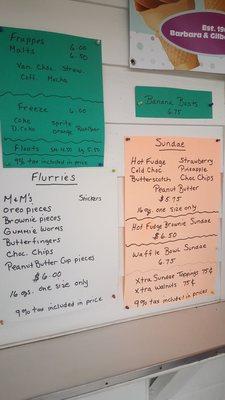 Frappes 6.00
Malts 6.50
Van. Choc. Straw.
Coff. Mocha
Freeze 6.00
Coke Sprite
D. Coke Orange Root Beer
Floats
9% tax included in price
Est. 19
Barbara & Gilb
Banana Boats
6.75
Flurries
M&M's Snickers
Oreo pieces
Brownie pieces
Gummie Worms
Butterfingers
Choc. Chips
Peanut Butter Cup pieces
$6.00
16 ozs. one size only
9% tax included in price
Sundae
Hot Fudge Strawberry
Cold Choc Pineapple
Butterscotch Choc Chips
Peanut Butter
$5.75
16 ozs. one size only
Hot Fudge Brownie Sundae
$6.50
Waffle Bowl Sundae
6.75
Xtra Sundae Toppings 75¢
Xtra Walnuts 75¢
9% tax included in prices